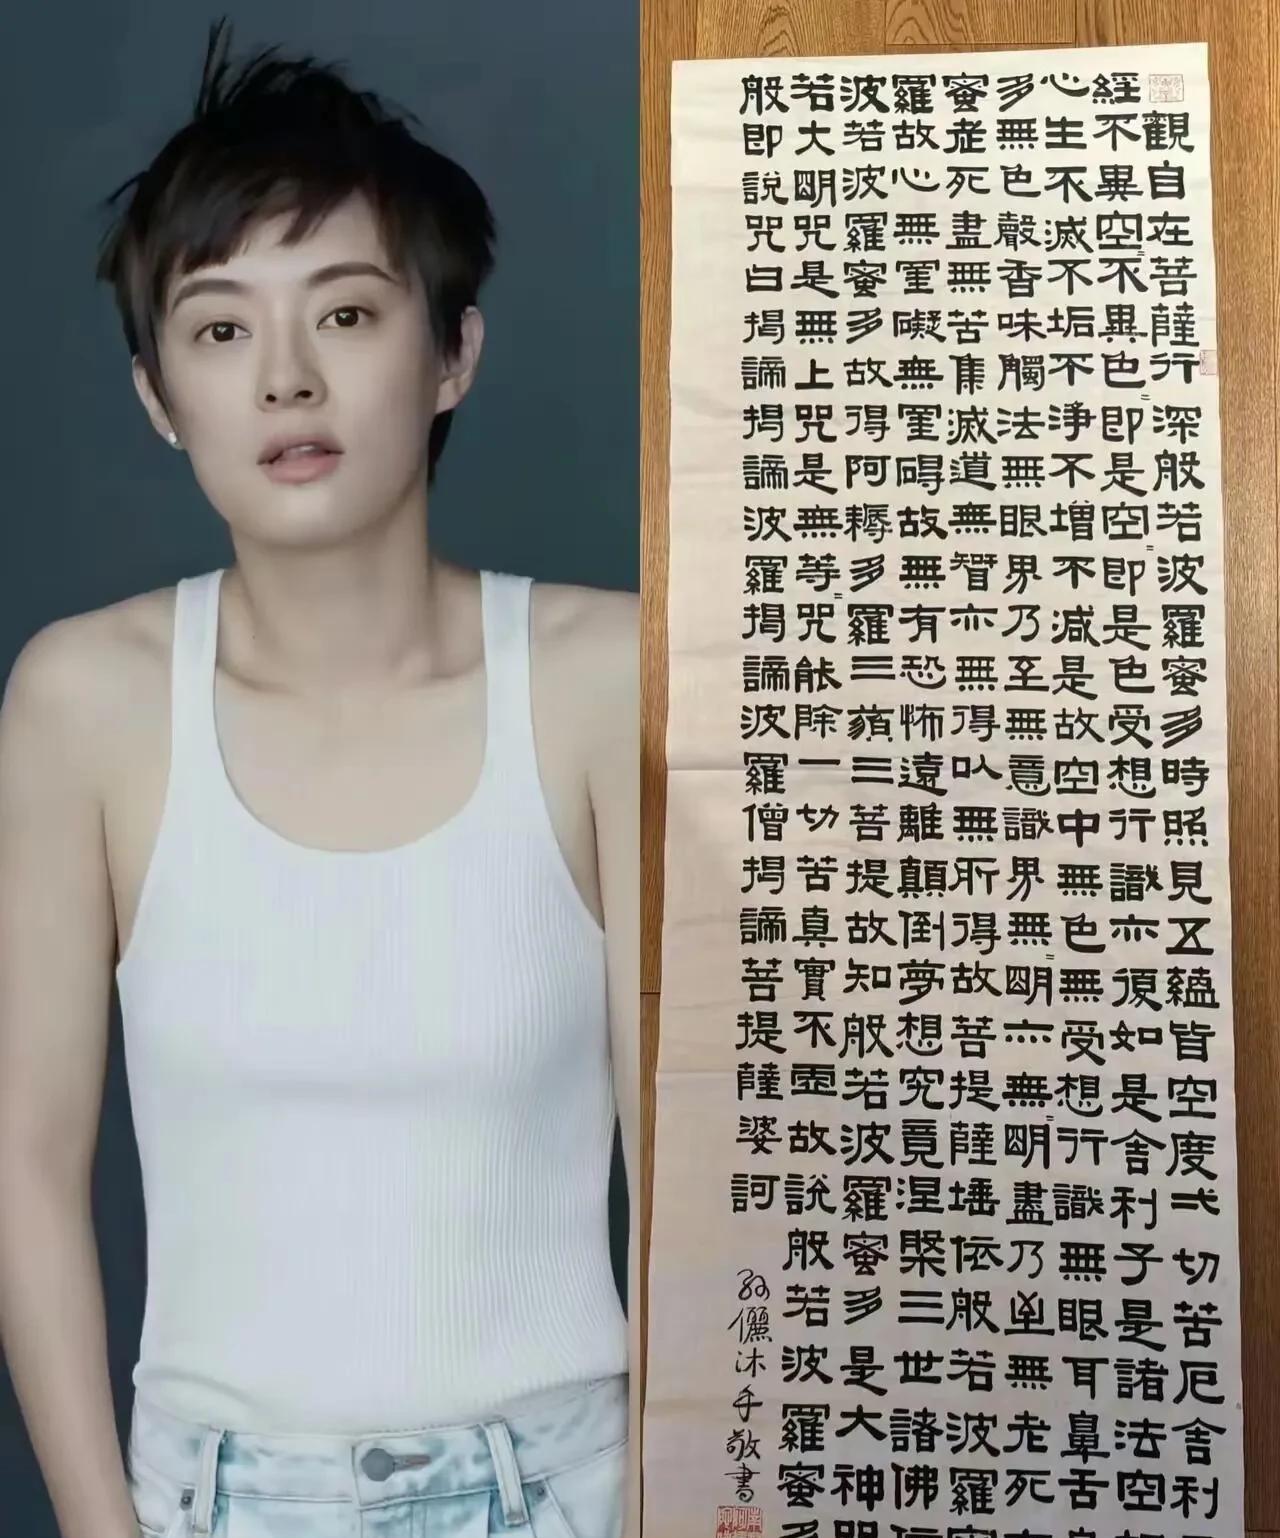 般若波羅蜜多心經
觀自在菩薩行深般若波羅蜜多時照見五蘊皆空度一切苦厄舍利
不異空=不異色=即是空=即是色受想行識亦復如是舍利子是諸法空
生不滅不垢不淨不增不減是故空中無色無受想行識無眼耳鼻舌
無色聲香味觸法無眼界乃至無意識界無=明亦無=明盡乃至無老死
老死盡無苦集滅道無智亦無得以無所得故菩提薩埵依般若波羅
故心無罣礙無罣碍故無有恐怖遠離顛倒夢想究竟涅槃三世諸佛
若波羅蜜多故得阿耨多羅三藐三菩提故知般若波羅蜜多是大神咒
大明咒是無上咒是無等=咒能除一切苦真實不虛故說般若波羅蜜
即說咒曰揭諦揭諦波羅揭諦波羅僧揭諦菩提薩婆訶
孫儷沐手敬書